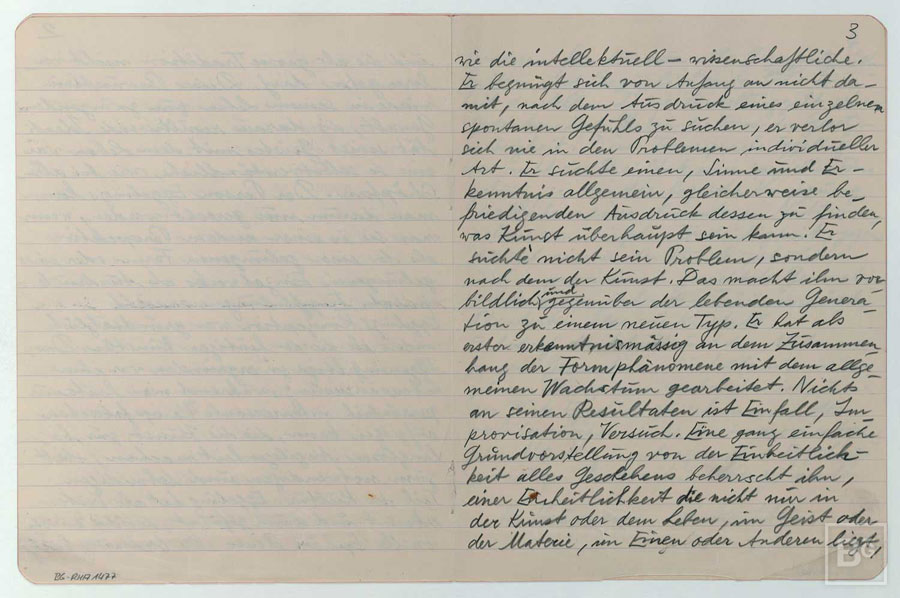 3
wie die intellektuell – wissenschaftliche.
Er begnügt sich von Anfang an nicht da-
mit, nach dem Ausdruck eines einzelnen
spontanen Gefühls zu suchen, er verlor
sich nie in den Problemen individueller
Art. Er suchte einen, Sinne und Er-
kenntnis allgemein, gleicherweise be-
friedigenden Ausdruck dessen zu finden,
was Kunst überhaupt sein kann. Er
suchte nicht sein Problem, sondern
nach dem der Kunst. Das macht ihn vor
bildlich und gegenüber der lebenden Genera-
tion zu einem neuen Typ. Er hat als
erster erkenntnismässig an dem Zusammen
hang der Formphänomene mit dem allge
meinen Wachstum gearbeitet. Nichts
an seinen Resultaten ist Einfall, Im-
provisation, Versuch. Eine ganz einfache
Grundvorstellung von der Einheitlich-
keit alles Geschehens beherrscht ihn,
einer Einheitlichkeit die nicht nur in
der Kunst oder dem Leben, im Geist oder
der Materie, im Einen oder Anderen liegt,
BG-RHA 1477
BG